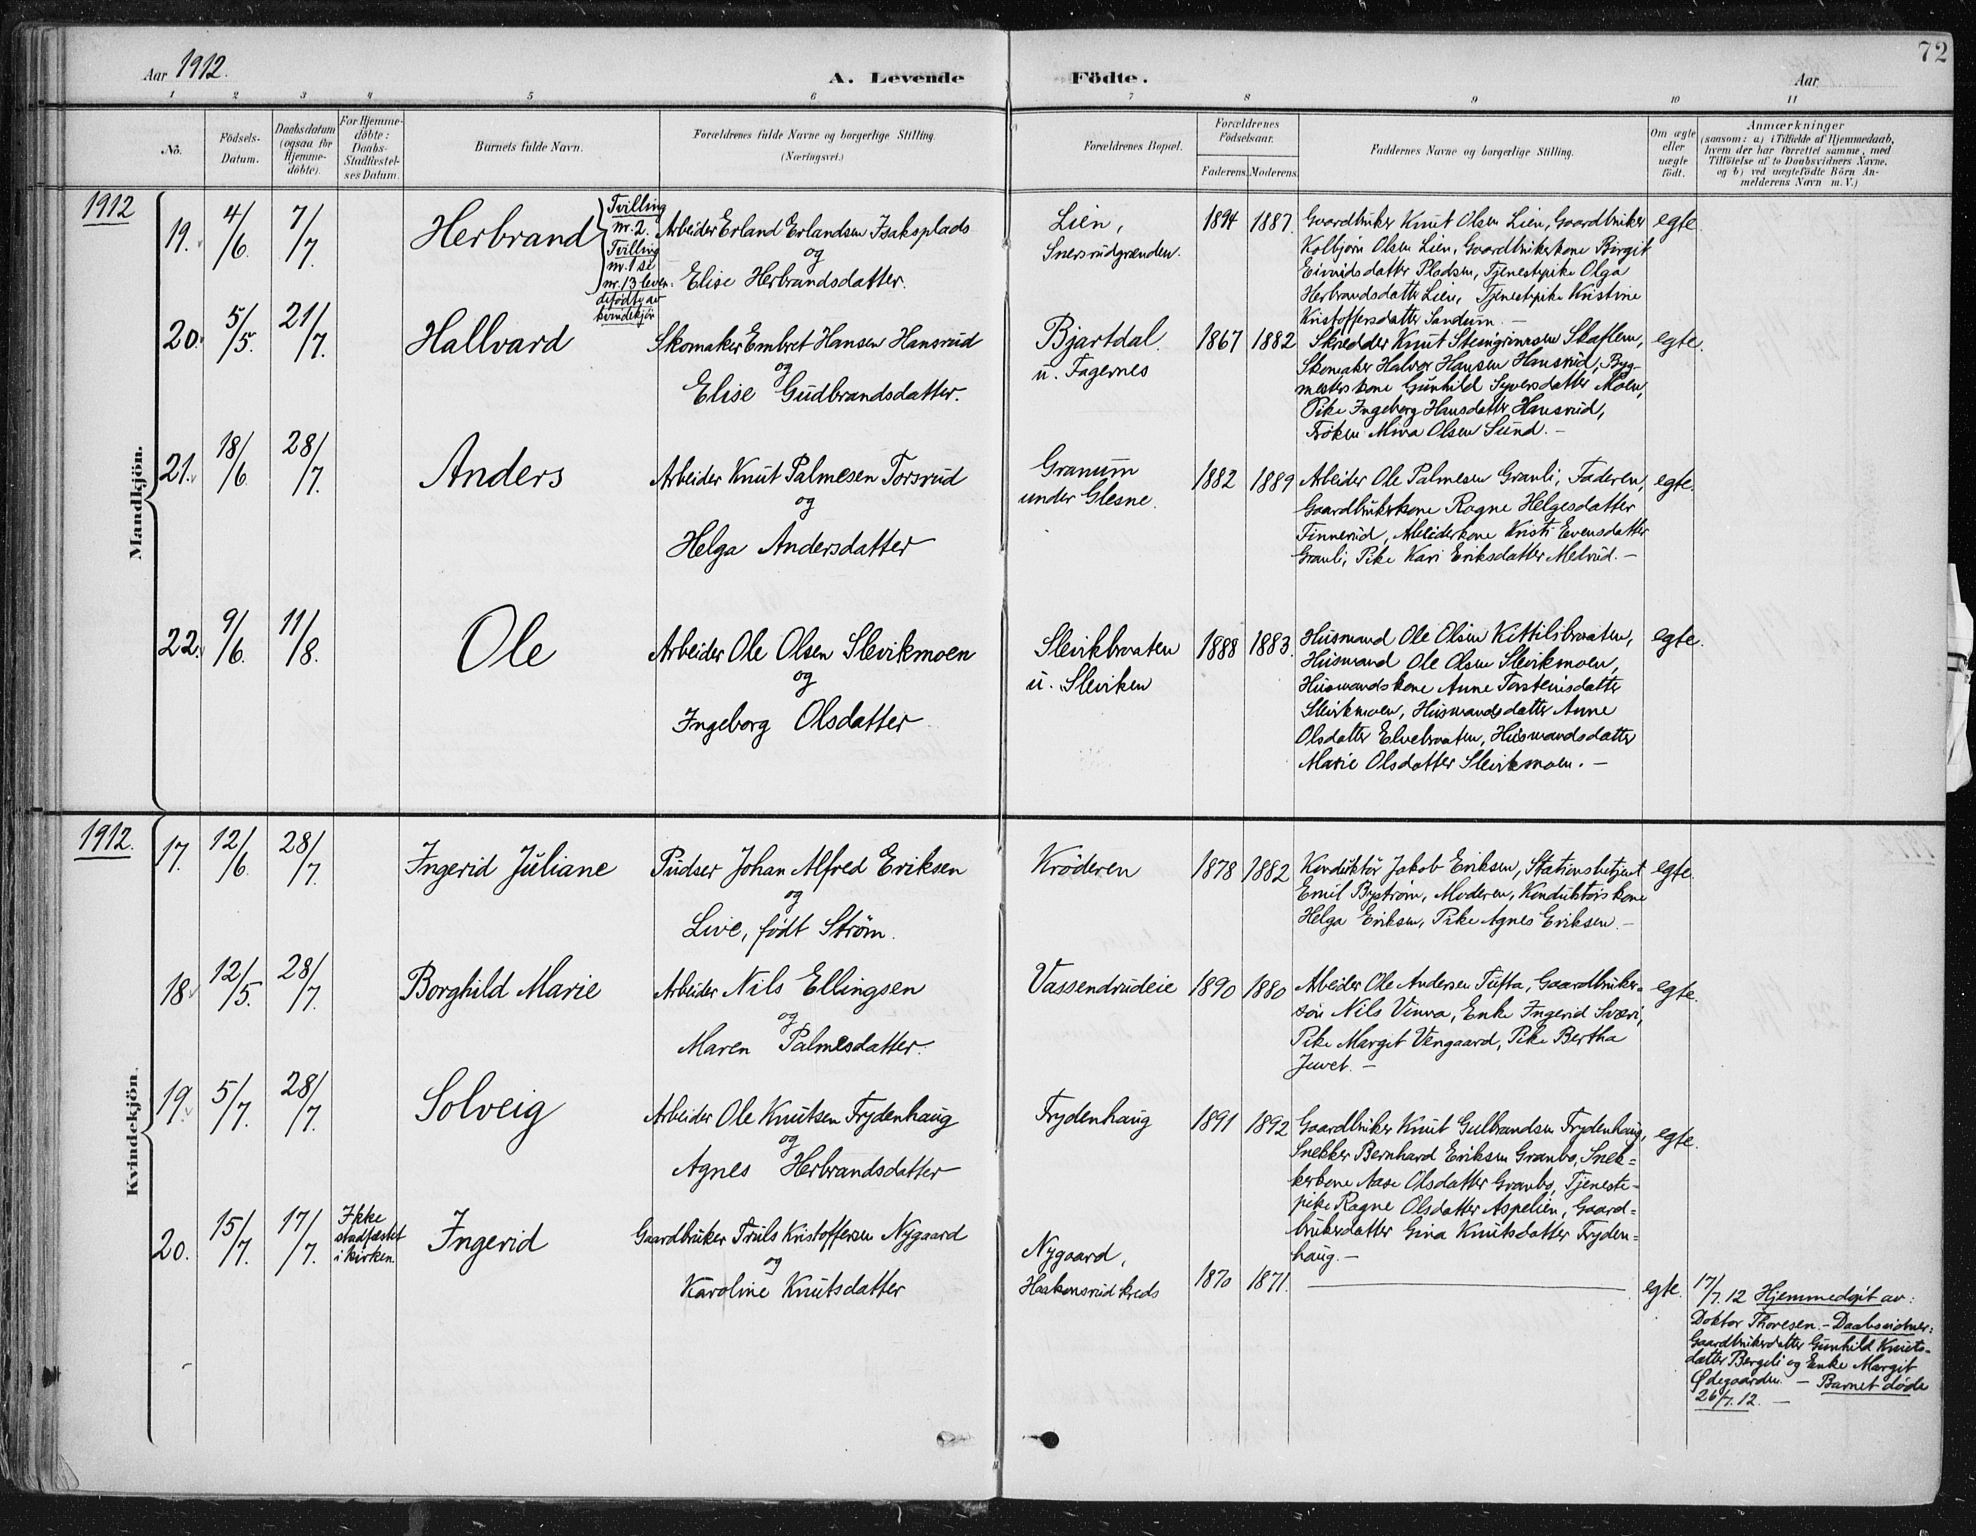 72
Aar 1912.
A. Levende Födte.
Aar
1 2 3 4 5 6 7 8 9 10 11
No.
Födsels-
Datum.
Daabsdatum
(ogsaa for
Hjemme-
döbte).
For Hjemme-
döbte:
Daabs-
Stadfæstel-
ses Datum.
Barnets fulde Navn.
Forældrenes fulde Navne og borgerlige Stilling.
(Næringsvei.)
Forældrenes Bopæl.
Forældrenes
Födselsaar.
Faderens. Moderens.
Faddernes Navne og borgerlige Stilling.
Om ægte
eller
uægte
födt.
Anmærkninger
(saasom: a) i Tilfælde af Hjemmedaab,
hvem der har forrettet samme, med
Tilföielse af to Daabsvidners Navne,
og b) ved uægtefödte Börn An-
melderens Navn m. V.)
Mandkjön.
1912
19. 4/6. 7/7. Herbrand
Tvilling
nr. 2.
Tvilling
nr. 1 se
nr. 13 leven-
defödte av
kvindekjön
Arbeider Erland Erlandsen Isaksplads
og
Elise Herbrandsdatter.
Lien,
Snersrudgrænden.
1894 1887.
Gaardbruker Knut Olsen Lien, Gaardbruker
Kolbjörn Olsen Lien, Gaardbrukerkone Birgit
Eivindsdatter Pladsen, Tjenestepike Olga
Herbrandsdatter Lien, Tjenestepike Kristine
Kristoffersdatter Sandum. —
egte.
20. 5/5. 21/7. Hallvard
Skomaker Embret Hansen Hansrud
og
Elise Gudbrandsdatter.
Bjartdal
u. Fagernes
1867 1882
Skrædder Knut Steingrimsen Skaflem,
Skomaker Halvor Hansen Hansrud, Byg-
mesterskone Gunhild Syversdatter Moen,
Pike Ingeborg Hansdatter Hansrud,
Fröken Mina Olsen Sund. —
egte.
21. 18/6. 28/7. Anders
Arbeider Knut Palmesen Torsrud
og
Helga Andersdatter
Granum
under Glesne.
1882 1889
Arbeider Ole Palmesen Granli, Faderen,
Gaardbrukerkone Ragne Helgesdatter
Finnerud, Arbeiderkone Kristi Evensdatter
Granli, Pike Kari Eriksdatter Medrud. —
egte.
22. 9/6. 11/8. Ole
Arbeider Ole Olsen Slevikmoen
og
Ingeborg Olsdatter
Slevikbraaten
u. Sleviken
1888 1883.
Husmand Ole Olsen Kittilsbraaten,
Husmand Ole Olsen Slevikmoen,
Husmandskone Anne Torsteinsdatter
Slevikmoen, Husmandsdatter Anne
Olsdatter Elvebraaten, Husmandsdatter
Marie Olsdatter Slevikmoen. —
egte.
Kvindekjön.
1912.
17. 12/6. 28/7. Ingerid Juliane
Pudser Johan Alfred Eriksen
og
Live, födt Ström.
Kröderen
1878 1882
Konduktör Jakob Eriksen, Stationsbetjent
Emil Byström, Moderen, Konduktörskone
Helga Eriksen, Pike Agnes Eriksen. —
egte.
18. 12/5. 28/7. Borghild Marie
Arbeider Nils Ellingsen
og
Maren Palmesdatter.
Vassendrudeie
1890 1880
Arbeider Ole Andersen Tufta, Gaardbruker-
sön Nils Vinva, Enke Ingerid Sværi,
Pike Margit Vengaard, Pike Bertha
Juvet. —
egte.
19. 5/7. 28/7. Solveig
Arbeider Ole Knutsen Frydenhaug
og
Agnes Herbrandsdatter
Frydenhaug
1891 1892
Gaardbruker Knut Gulbrandsen Frydenhaug,
Snekker Bernhard Eriksen Granbo, Snek-
kerkone Aase Olsdatter Granbo, Tjeneste-
pike Ragne Olsdatter Aspelien, Gaard-
brukerdatter Gina Knutsdatter Fryden-
haug. —
egte.
20. 15/7. 17/7. Ikke
stadfæstet
i kirken.
Ingerid
Gaardbruker Truls Kristoffersen Nygaard
og
Karoline Knutsdatter
Nygaard,
Haakonsrud kreds
1870 1871.
egte.
17/7.12 Hjemmedöpt av:
Doktor Thoresen. — Daabsvidner:
Gaardbrukerdatter Gunhild Knuts-
datter Bergeli og Enke Margit
Ödegaarden. — Barnet döde
26/7.12. —